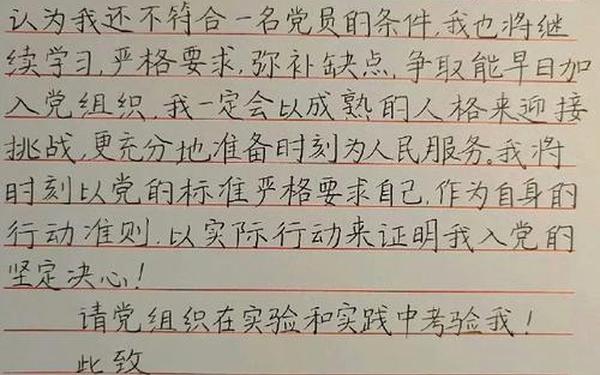 认为我还不符合一名党员的条件,我也将继
续学习,严格要求,弥补缺点,争取能早日加
入党组织,我一定会以成熟的人格来迎接
挑战,更充分地准备时刻为人民服务。我将
时刻以党的标准严格要求自己,作为自身的
行动准则,以实际行动来证明我入党的
坚定决心!
请党组织在实验和实践中考验我!
此致